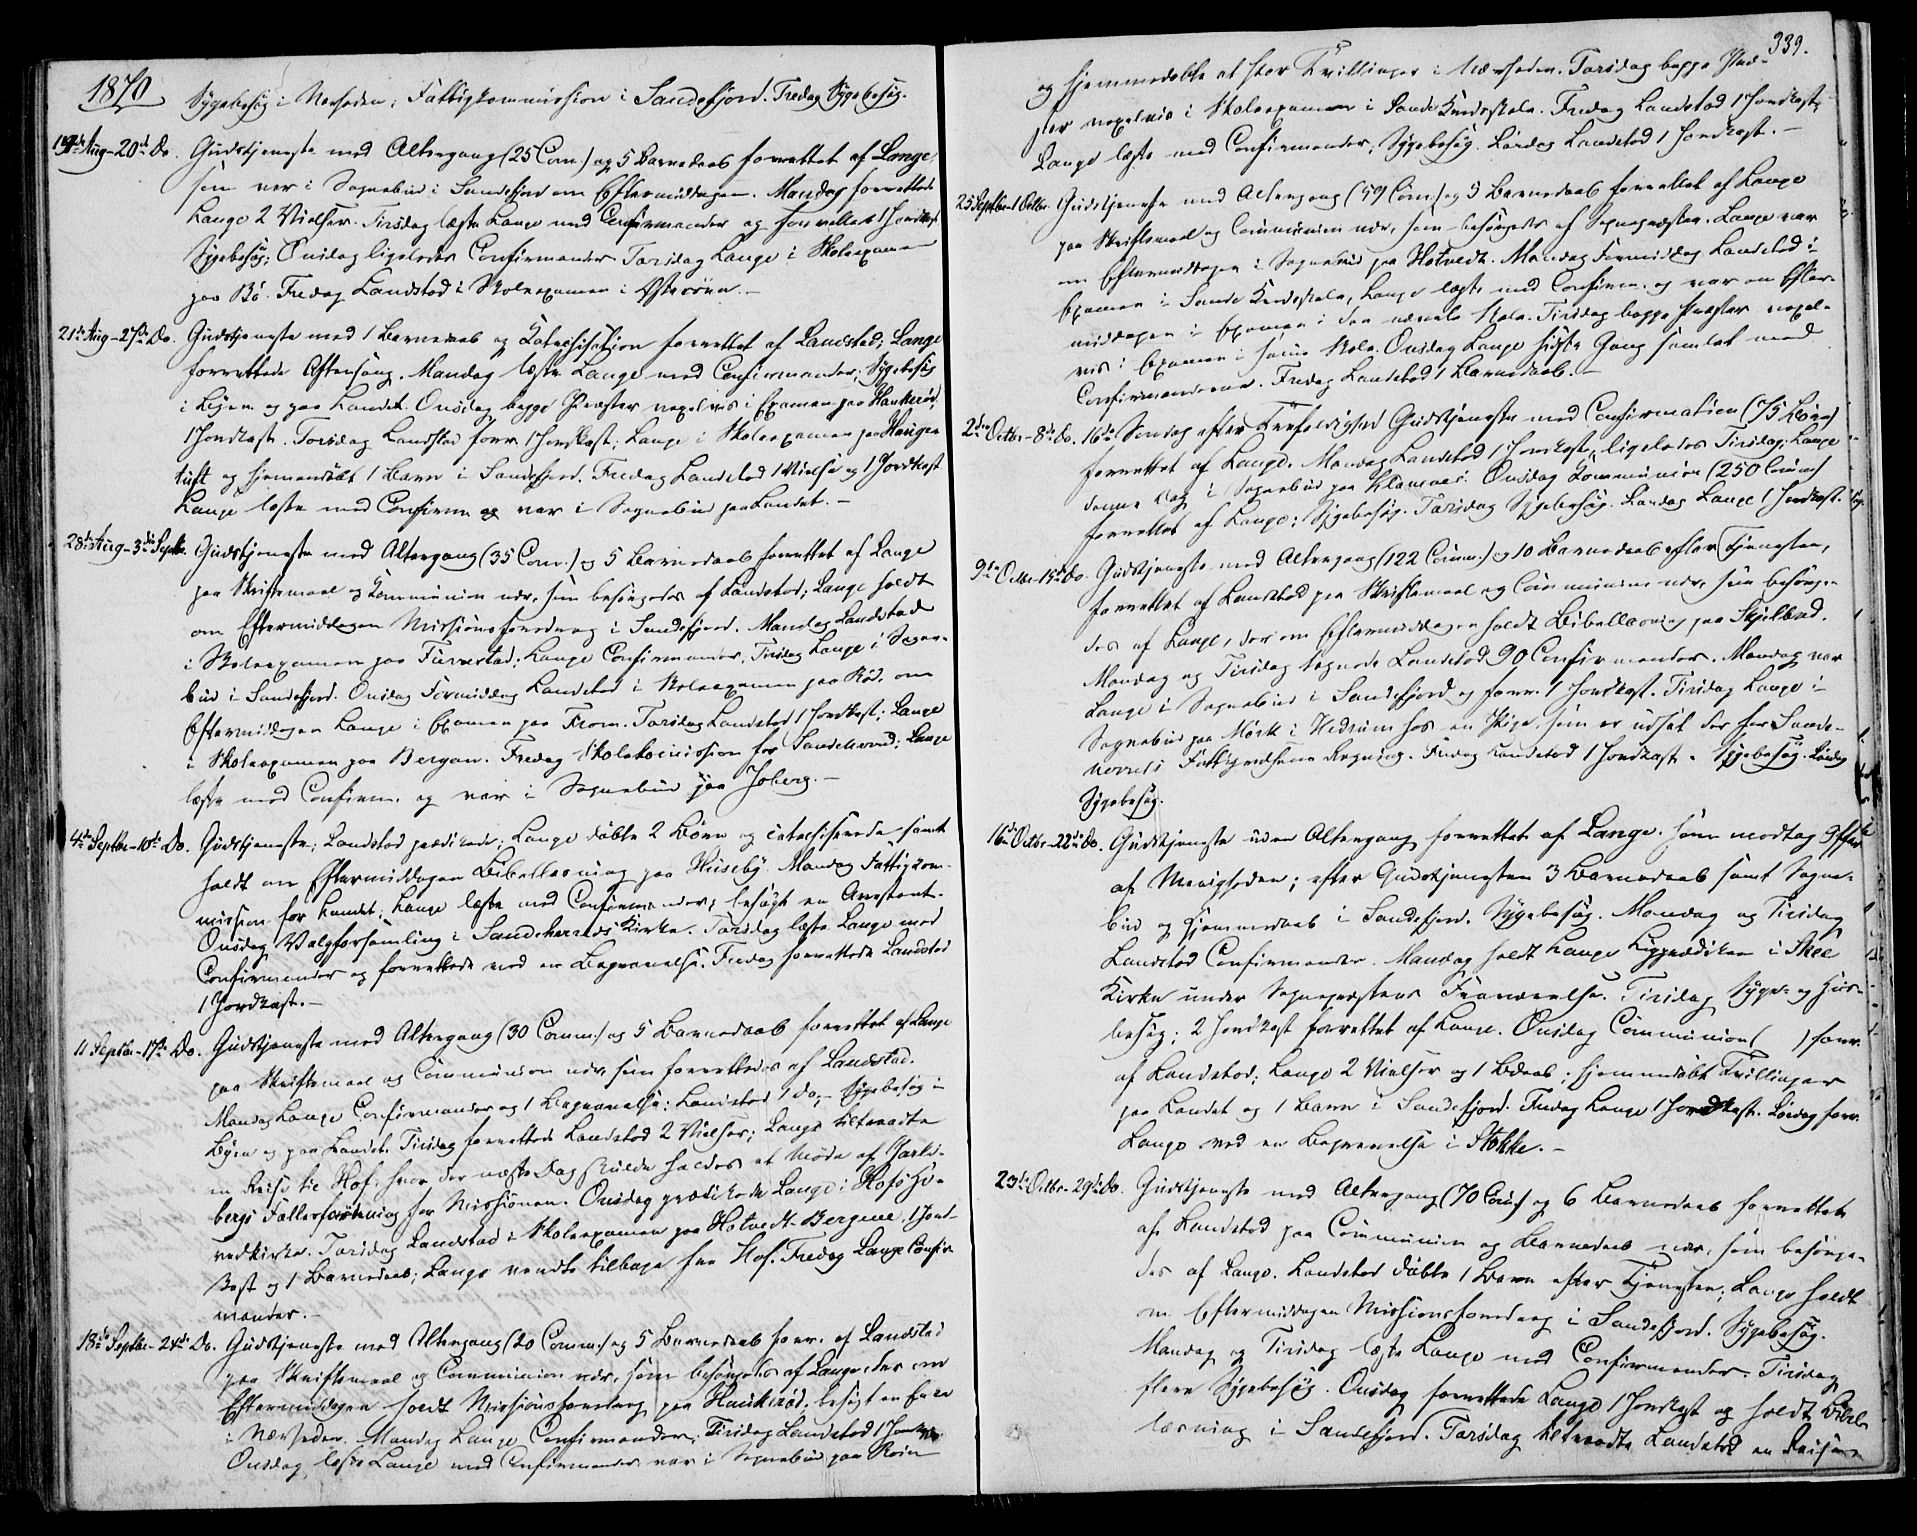 1870
Sygebesøg i Nærheden; Fattigkommission i Sandefjord. Fredag Sygebesøg.
14de Aug – 20de Do. Gudstjeneste med Altergang (25 Com.) og 5 Barnedaab forrettet af Lange,
som var i Sognebud i Sandefjord om Eftermiddagen. Mandag forrettede
Lange 2 Vielser. Tirsdag læste Lange med Confirmander og forrettede 1 Jordkast
Sygebesøg; Onsdag ligeledes Confirmander Torsdag Lange i Skoleexamen
paa Bø. Fredag Landstad i Skoleexamen i Østerøen.–
21de Aug – 27de Do. Gudstjeneste med 1 Barnedaab og Katechisation forrettet af Landstad; Lange
forrettede Aftensang. Mandag læste Lange med Confirmander; Sygebesøg
i Byen og paa Landet. Onsdag begge Præster vexelvis i Examen paa Haukerød,
1 Jordkast. Torsdag Landstad forr. 1 Jordkast; Lange i Skoleexamen paa Haugen
tuft og hjemmedøbt 1 Barn i Sandefjord. Fredag Landstad 1 Vielse og 1 Jordkast
Lange læste med Confirm og var i Sognebud paa Landet.–
28de Aug – 3die Septbr. Gudstjeneste med Altergang (35 Com.) og 5 Barnedaab forrettet af Lange
paa Skriftemaal og Kommunion nær, som besørgedes af Landstad; Lange holdt
om Eftermiddagen Missionsforedrag i Sandefjord. Mandag Landstad
i Skoleexamen paa Furustad; Lange Confirmander, Tirsdag Lange i Sogne-
bud i Sandefjord. Onsdag Formiddag Landstad i Skoleexamen paa Rød, om
Eftermiddagen Lange i Examen paa From. Torsdag Landstad 1 Jordkast; Lange
i Skoleexamen paa Bergan. Fredag Skolekommission for Sandeherred; Lange
læste med Confirm. og var i Sognebud paa Joberg.–
4de Septbr – 10de Do. Gudstjeneste; Landstad prædikede; Lange døbte 2 Børn og catechiserede samt
holdt om Eftermiddagen Bibellæsning paa Huseby. Mandag Fattigkom-
mission for Landet; Lange læste med Confirmander; besøgt en Arrestant.
Onsdag Valgforsamling i Sandeherreds Kirke. Torsdag læste Lange med
Confirmander og forrettede ved en Begravelse. Fredag forrettede Landstad
1 Jordkast.–
11 Septbr – 17de Do. Gudstjeneste med Altergang (30 Comm.) og 5 Barnedaab forrettet af Lange
paa Skriftemaal og Communion nær som forrettedes af Landstad.
Mandag Lange Confirmander og 1 Begravelse; Landstad 1 do; – Sygebesøg i
Byen og paa Landet. Tirsdag forrettede Landstad 2 Vielser; Lange tiltraadte
en Reise til Hof, hvor der næste Dag skulde holdes et Møde af Jarls-
bergs Fællesforening for Missionen. Onsdag prædikede Lange i Hofs Ho-
vedkirke. Torsdag Landstad i Skoleexamen paa Hotvedt-Bergene, 1 Jord-
kast og 1 Barnedaab; Lange vendte tilbage fra Hof. Fredag Lange Confir-
mander.–
18de Septbr – 24de Do. Gudstjeneste med Altergang (20 Comm.) og 5 Barnedaab forr. af Landstad
paa Skriftemaal og Communion nær, som besørgedes af Lange, der om
Eftermiddagen holdt Missionsforedrag paa Haukerød; besøgt en
i Nærheden. Mandag Lange Confirmander; Tirsdag Landstad 1 Jordkast
Onsdag læste Lange med Confirmander var i Sognebud paa
339.
og hjemmedøbte et Par Tvillinger i Nærheden. Torsdag begge Præ-
ster vexelvis i Skoleexamen i Sande Kredsskole. Fredag Landstad 1 Jordkast,
Lange læste med Confirmander, Sygebesøg. Lørdag Landstad 1 Jordkast.–
25 Septbr – 1 Octbr. Gudstjeneste med Altergang (59 Com.) og 5 Barnedaab forrettet af Lange
paa Skriftemaal og Communion nær, som besørgedes af Sognepræsten. Lange var
om Eftermiddagen i Sognebud paa Hotvedt. Mandag Formiddag Landstad i
Examen i Sande Kredsskole, Lange læste med Confirm. og var om Efter-
middagen i Examen i den nævnte Skole. Tirsdag begge Præster vexel-
vis i Examen i samme Skole. Onsdag Lange sidste Gang samlet med
Confirmanderne. Fredag Landstad 1 Barnedaab.–
2den Octbr – 8de Do. 16de Søndag efter Trefoldighed Gudstjeneste med Confirmation (75 Børn)
forrettet af Lange. Mandag Landstad 1 Jordkast, ligeledes Tirsdag; Lange
denne Dag i Sognebud paa Klavenes. Onsdag Kommunion (250 Comm)
forrettet af Lange; Sygebesøg. Torsdag Sygebesøg. Lørdag Lange 1 Jordkast.
9de Octbr – 15de Do. Gudstjeneste med Altergang (122 Comm.) og 10 Barnedaab efter Tjenesten,
forrettet af Landstad paa Skriftemaal og Communion nær, som besørge-
des af Lange, der om Eftermiddagen holdt Bibellæsning paa Skjelbred.
Mandag og Tirsdag tegnede Landstad 90 Confirmander. Mandag var
Lange i Sognebud i Sandefjord og forr. 1 Jordkast. Tirsdag Lange i
Sognebud paa Mørk i Hedrum hos en Pige som er udsat der for Sande-
herreds Fattigvæsens Regning. Fredag Landstad 1 Jordkast. Sygebesøg. Lørdag
Sygebesøg.
16de Octbr – 22de Do. Gudstjeneste uden Altergang forrettet af Lange, som modtog Offer
af Menigheden; efter Gudstjenesten 3 Barnedaab samt Sogne-
bud og Hjemmedaab i Sandefjord. Sygebesøg. Mandag og Tirsdag
Landstad Confirmander. Mandag holdt Lange Ligprædiken i Skee
Kirke under Sognepræstens Fraværelse. Tirsdag Syge- og Hus-
besøg; 2 Jordkast forrettet af Lange. Onsdag Communion ( ) forr.
af Landstad; Lange 2 Vielser og 1 Bdaab; hjemmedøbt Tvillinger
paa Landet og 1 Barn i Sandefjord. Fredag Lange 1 Jordkast. Lørdag forr.
Lange ved en Begravelse i Stokke.–
23de Octbr – 29de Do. Gudstjeneste med Altergang (70 Com) og 6 Barnedaab forrettet
af Landstad paa Communion og Barnedaab nær, som besørge-
des af Lange. Landstad døbte 1 Barn efter Tjenesten; Lange holdt
om Eftermiddagen Missionsforedrag i Sandefjord. Sygebesøg.
Mandag og Tirsdag læste Lange med Confirmander. Tirsdag
flere Sygebesøg. Onsdag forrettede Lange 1 Jordkast og holdt Bibel-
læsning i Sandefjord. Torsdag tiltraadte Landstad en Reise